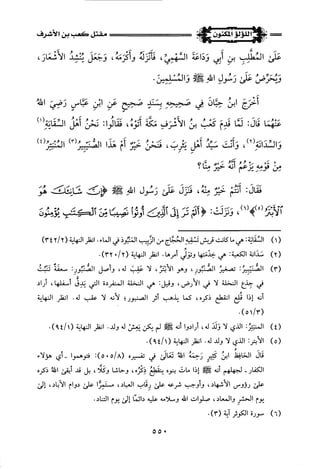 اللؤلؤ المكنون
مقتل كعب بن الأشرف
عَلَى المُطَّلِبِ بنِ أَبِي وَدَاعَةَ السَّهْمِيِّ، فَأَنْزَلَهُ وَأَكْرَمَهُ، وَجَعَلَ يُنْشِدُ الأَشْعَارَ،
وَيُحَرِّضُ عَلَى رَسُولِ اللهِ ﷺ وَالمُسْلِمِينَ.
أَخْرَجَ ابنُ حِبَّانَ فِي صَحِيحِهِ بِسَنَدٍ صَحِيحٍ عَنِ ابنِ عَبَّاسٍ رَضِيَ اللهُ
عَنْهُمَا قَالَ: لَمَّا قَدِمَ كَعْبُ بنُ الأَشْرَفِ مَكَّةَ أَتَوْهُ، فَقَالُوا: نَحْنُ أَهْلُ السِّقَايَةِ(١)
وَالسَّدَانَةِ(٢)، وَأَنْتَ سَيِّدُ أَهْلِ يَثْرِبَ، فَنَحْنُ خَيْرٌ أَمْ هَذَا الصُّنَيْبِيرُ(٣) المُنْبَتِرُ(٤)
مِنْ قَوْمِهِ يَزْعُمُ أَنَّهُ خَيْرٌ مِنَّا؟
فَقَالَ: أَنْتُمْ خَيْرٌ مِنْهُ، فَنَزَلَ عَلَى رَسُولِ اللهِ ﷺ ﴿إِنَّ شَانِئَكَ هُوَ
الْأَبْتَرُ(٥)﴾(٦)، وَنَزَلَتْ: ﴿أَلَمْ تَرَ إِلَى الَّذِينَ أُوتُوا نَصِيبًا مِنَ الْكِتَابِ يُؤْمِنُونَ
(١) السِّقَايَةُ: هي ما كانت قريش تَسْقِيهِ الحُجَّاج من الزَّبيب المَنْبُوذِ في الماء. انظر النهاية (٣٤٢/٢)
(٢) سَدَانَة الكعبة: هي خِدْمَتُها وتوَلِّي أمرها. انظر النهاية (٣٢٠/٢).
(٣) الصُّنَيْبِيرُ: تصغير الصُّنْبُور، وهو الأبْتَرُ، لا عَقِبَ له، وأصل الصُّنْبُورِ: سعفَةٌ تَنْبُتُ
في جِذع النخلة لا في الأرض، وقيل: هي النخلة المنفردة التي يَدِقُّ أسفلها، أراد
أنه إذا قُلِعَ انقطع ذكره، كما يذهب أثر الصنبور؛ لأنه لا عقب له. انظر النهاية
(٥١/٣)
(٤) المُنْبَتِرُ: الذي لا وَلَدَ له، وأرادوا أنه ﷺ لم يكن يَعِيشُ له ولد. انظر النهاية (٩٤/١).
(٥) الأبتر: الذي لا ولد له. انظر النهاية (٩٤/١).
قال الحَافِظُ ابنُ كَثِيرٍ رَحِمَهُ اللهُ تَعَالَى في تفسيره (٥٠٥/٨): فتوهموا -أي هؤلاء
الكفار- لجهلهم أنه ﷺ إذا مات بنوه ينقَطِعُ ذِكْرُه، وحاشا وَكَلَّا، بل قد أبقى اللهُ ذكره
على رؤوس الأشهاد، وأوجب شرعه على رِقَاب العباد، مستَمِرًّا على دوام الآباد، إلى
يوم الحشر والمعاد، صلوات الله وسلامه عليه دائمًا إلى يوم التناد.
(٦) سورة الكوثر آية (٣).
٥٥٠